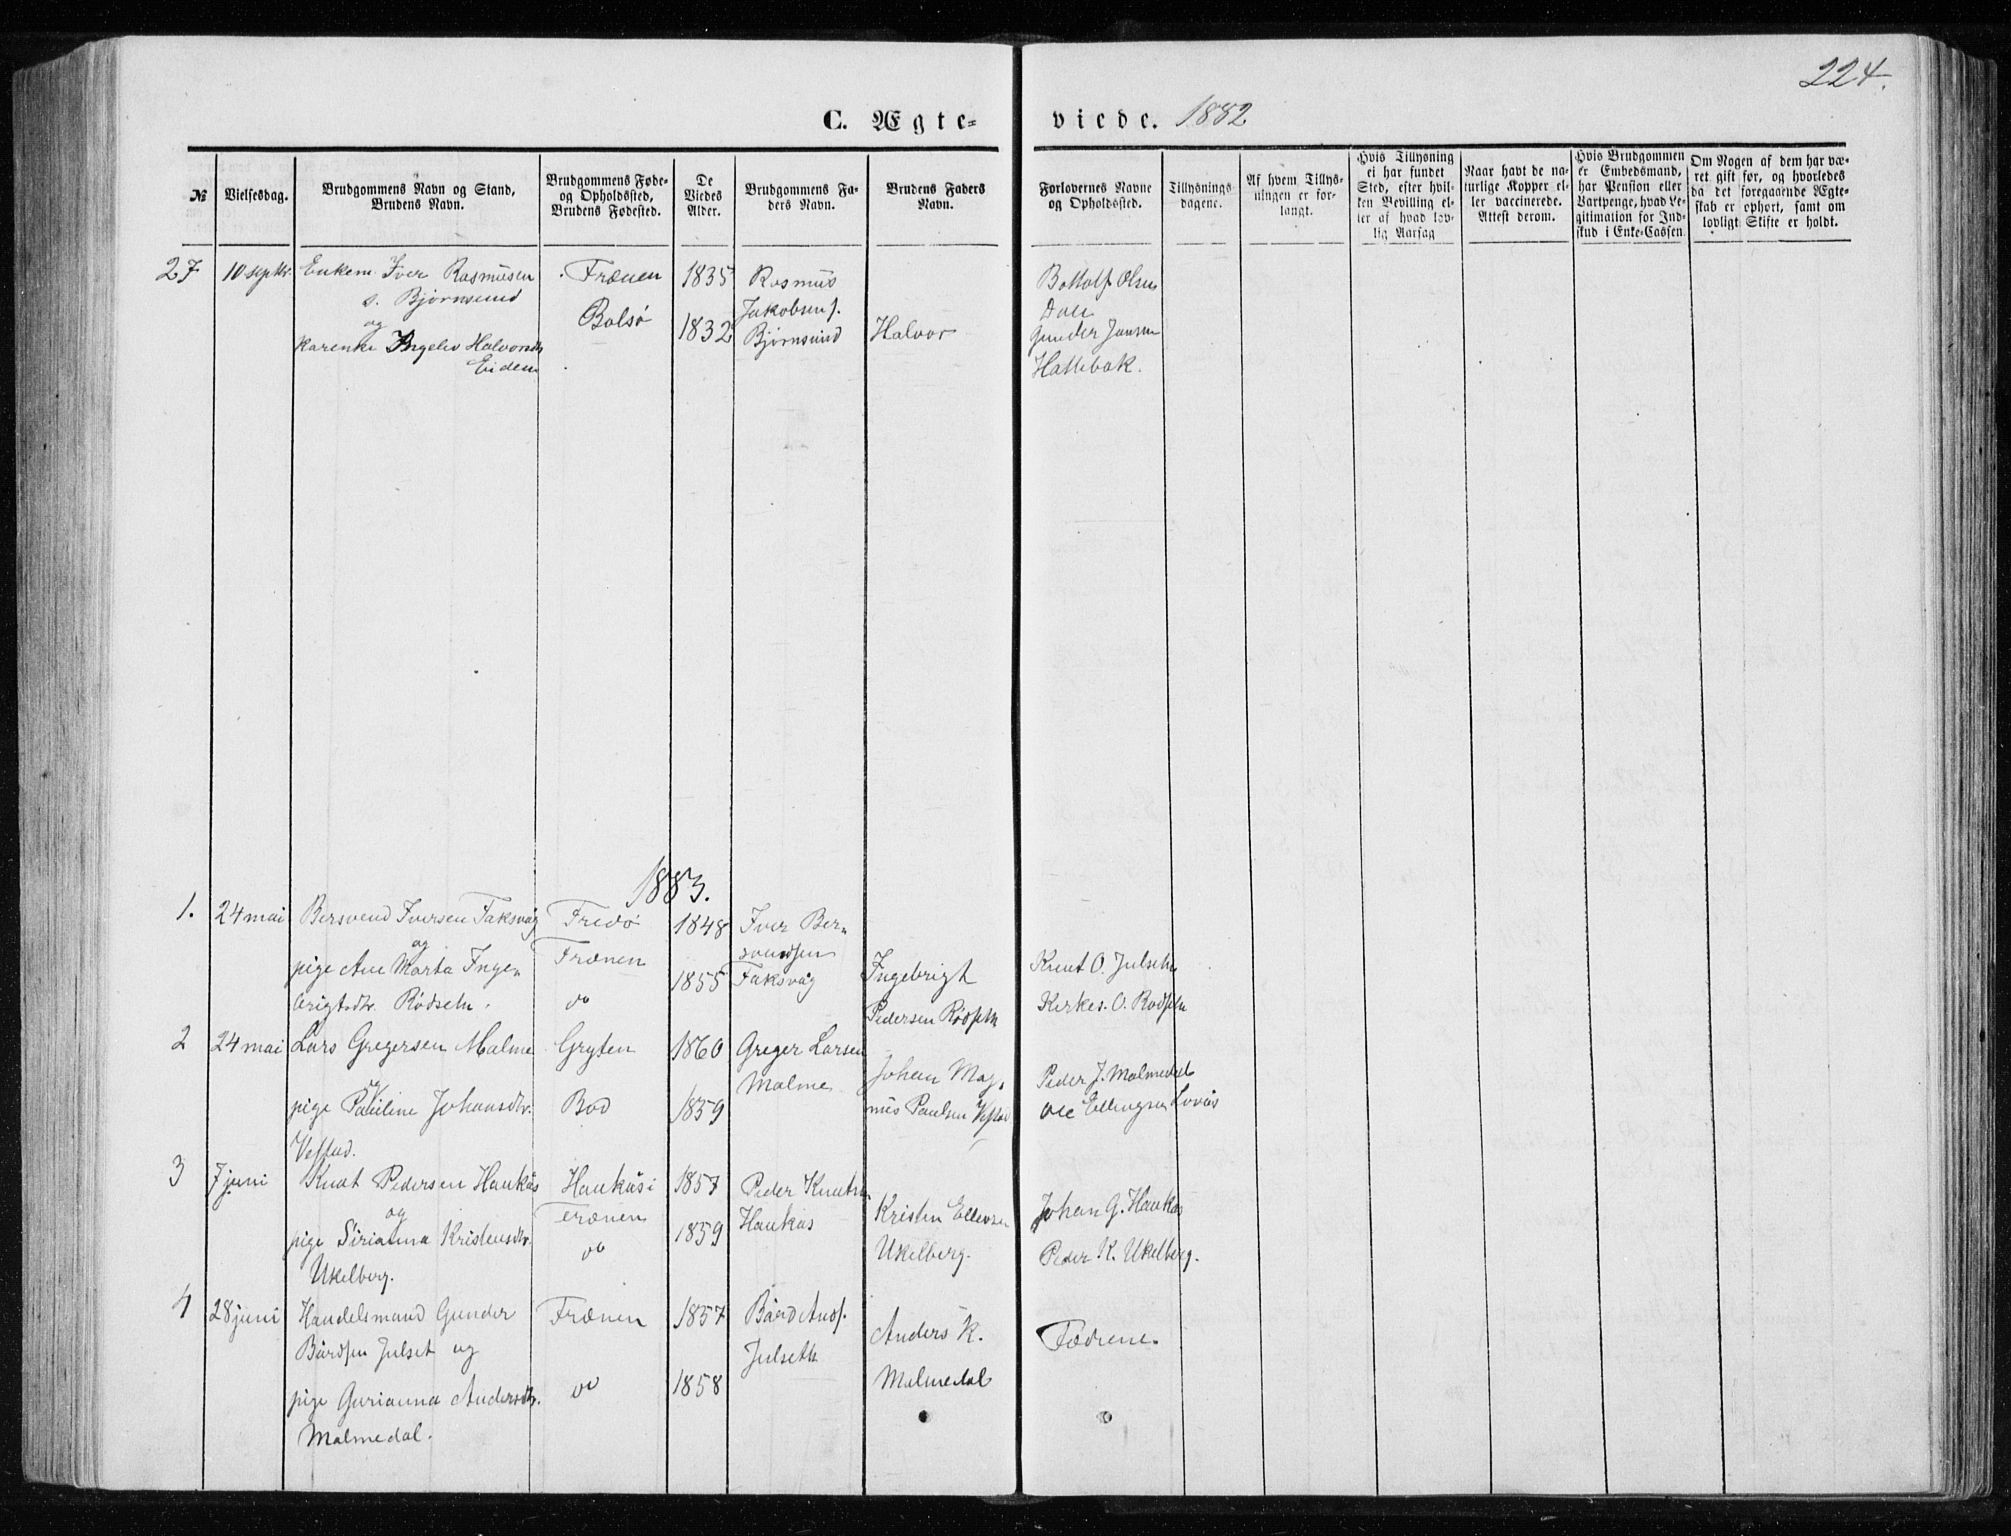 224.
C. Ægte-
viede. 1882
№
Vielsesdag.
Brudgommens Navn og Stand,
Brudens Navn.
Brudgommens Føde-
og Opholdssted,
Brudens Fødested.
De
Viedes
Alder.
Brudgommens Fa-
ders Navn.
Brudens Faders
Navn.
Forlovernes Navne
og Opholdssted.
Tillysnings-
dagene.
Af hvem Tillys-
ningen er for-
langt.
Hvis Tillysning
ei har fundet
Sted, efter hvil-
ken Bevilling el-
ler af hvad lov-
lig Aarsag
Naar havt de na-
turlige Kopper el-
ler vaccinerede.
Attest derom.
Hvis Brudgommen
er Embedsmand,
har Pension eller
Vartpenge, hvad Le-
gitimation for Ind-
skud i Enke-Cassen
Om Nogen af dem har væ-
ret gift før, og hvorledes
da det foregaaende Ægte-
skab er ophørt, samt om
lovligt Skifte er holdt.
27
10 septbr.
Enkem. Iver Rasmusen
s. Bjørnsund
og
Karenke Ingelev Halvorsdtr
Eidem
Frænen
Bolsø
1835
1832
Rasmus
Jakobsen s.
Bjørnsund
Halvor
Bottolf Olsen
Dale
Gunder Jansen
Hattebak.
1883.
1.
24 mai
Bersvend Iversen Taksvåg
og
pige Ane Marta Inge-
brigtsdtr. Rødseth.
Fredø
Frænen
do
1848
1855
Iver Ber-
svendsen
Taksvåg
Ingebrigt
Pedersen Rødseth
Knut O. Julseth
Kerkes. O. Rødseth
2
24 mai
Lars Gregersen Malme
og
pige Pauline Johansdtr.
Vestad.
Gryten
Bod
1860
1859
Greger Larsen
Malme
Johan Mag-
nus Paulsen Vestad
Peder J. Malmedal
Ole Ellingsen Lovås
3
7 juni
Knut Pedersen Haukås
og
pige Sirianna Kristensdtr.
Ukelberg.
Haukås i
Frænen
do
1857
1859
Peder Knutsen
Haukås
Kristen Ellevsen
Ukelberg.
Johan G. Haukås
Peder K. Ukelberg.
4
28 juni
Handelsmand Gunder
Bårdsen Julset og
pige Gurianna Andersdtr.
Malmedal.
Frænen
do
1857
1858
Bård Ands.
Julseth
Anders K.
Malmedal
Fædrene.